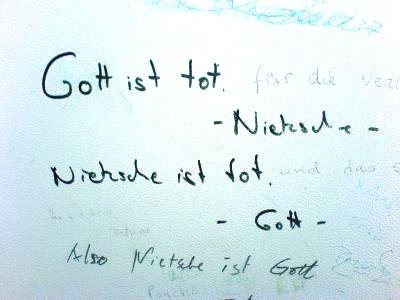 Gott ist tot. für die
- Nietzsche -
Nietzsche ist tot. und das
- Gott -
Also Nietsche ist Gott
Psycho